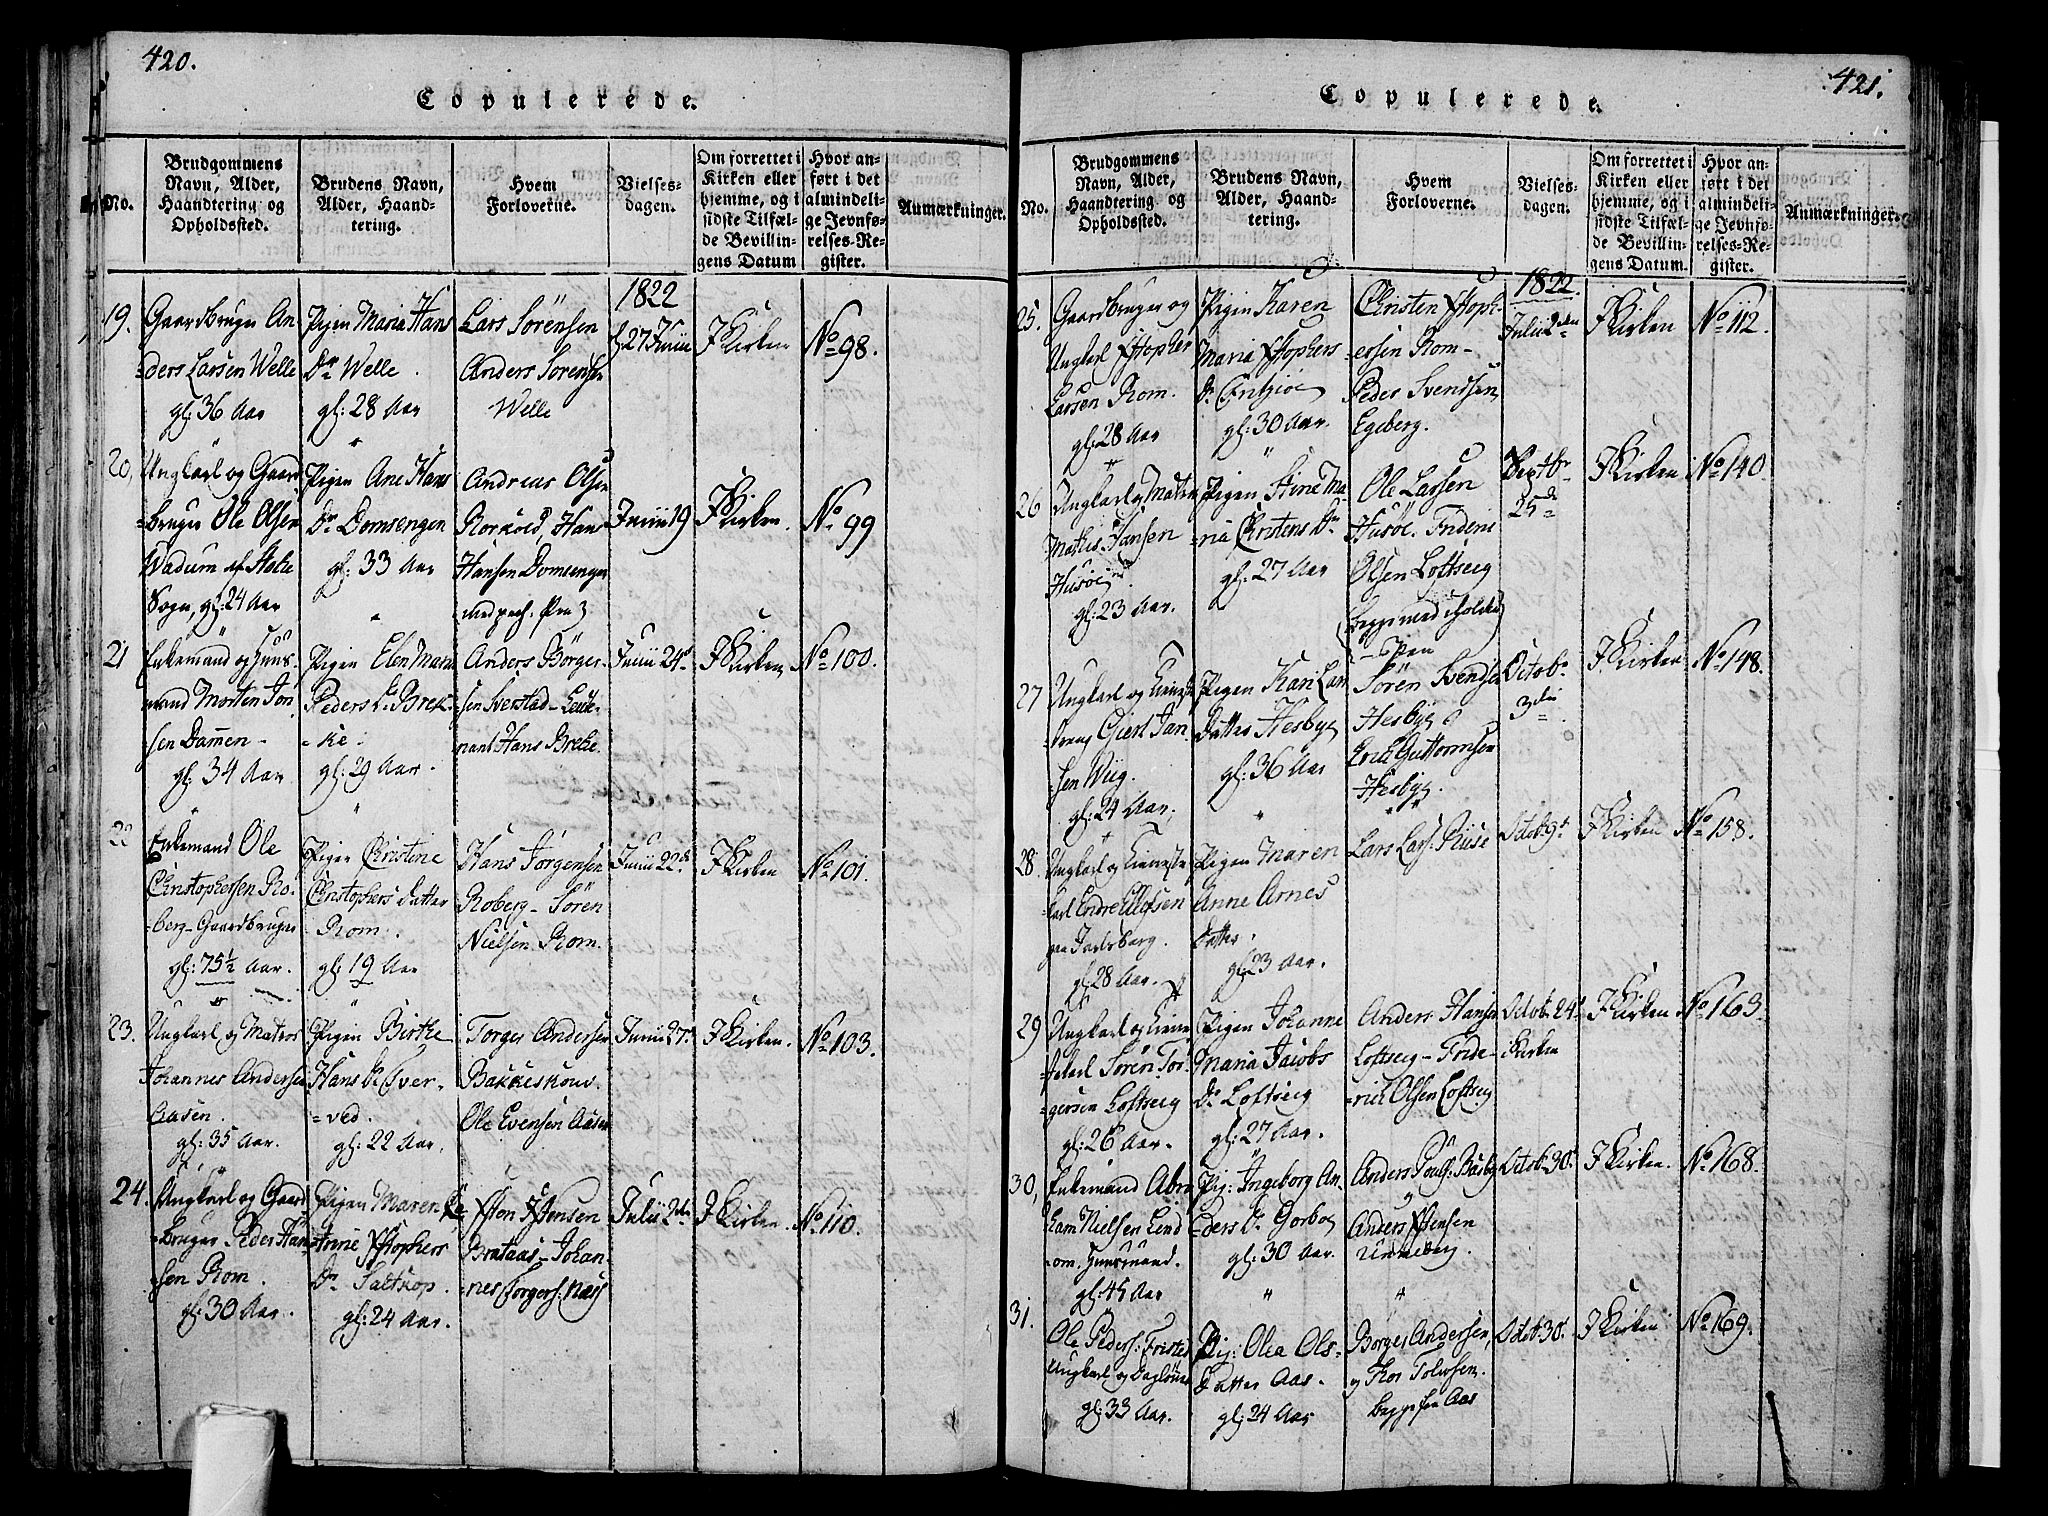 420.
Copulerede.
No.
Brudgommens Navn, Alder, Haandtering og Opholdssted.
Brudens Navn, Alder, Haandtering.
Hvem Forloverne.
Vielses-dagen.
Om forrettet i Kirken eller hjemme, og i sidste Tilfælde Bevillingens Datum
Hvor anført i det almindelige Jevnførelses-Register.
Anmærkninger.
1822
19.
Gaardbruger An-
ders Larsen Welle
gl: 36 Aar
Pigen Maria Hans
Dr Welle.
gl: 28 Aar
Lars Sørensen
Anders Sørensen
Welle
27 Junii
I Kirken
No 98.
20,
Ungkarl og Gaard
bruger Ole Olsen
Wadum af
Sogn, gl: 24 Aar
Pigen Ane Hans
Dr Domsengen
gl: 33 Aar
Andreas Olsen
Rorkold, Hans
Hansen Domsengen
Junii 19
I Kirken.
No 99
21
Enkemand og Huus-
mand Morten Jon-
sen Dammen -
gl: 34 Aar
Pigen Elen Maria
Peders Dr Brek-
ke.
gl: 29 Aar.
Anders Börger-
sen Sverstad - Leute-
nant Hans Brekke.
Junii 24d
I Kirken
No 100.
22
Enkemand Ole
Christophersen Ro-
berg - Gaardbruger
gl: 75½ Aar.
Pigen Christine
Christophers datter
Rom.
gl: 19 Aar
Hans Jørgensen
Roberg - Sören
Nielsen Rom.
Junii 22de
I Kirken
No 101.
23.
Ungkarl og Matros
Johannes Andersen
Aasen.
gl: 35 Aar.
Pigen Birthe
Hans Dr Tver-
ved.
gl: 22 Aar.
Torger Andersen
Bakkeskou.
Ole Evensen Aasen
Junii 27de
I Kirken.
No 103.
24.
Ungkarl og Gaard
bruger Peder Han-
sen Rom.
gl: 30 Aar.
Pigen Maren Ka-
trine Xstophers
Dr Saltkop.
gl: 24 Aar.
Xsten Xstensen
Brataas - Johan-
nes Torgers: Næss
Julii 2den
I Kirken.
No 110.
421.
Copulerede.
No.
Brudgommens Navn, Alder, Haandtering og Opholdssted.
Brudens Navn, Alder, Haandtering.
Hvem Forloverne.
Vielses-dagen.
Om forrettet i Kirken eller hjemme, og i sidste Tilfælde Bevillingens Datum.
Hvor anført i det almindelige Jevnførelses-Register.
Anmærkninger.
1822
25.
Gaardbruger og
Ungkarl Xstopher
Larsen Rom.
gl: 28 Aar
Pigen Karen
Maria Xstophers
Dr
gl: 30 Aar.
Christen Xstoph-
ersen Rom -
Peder Svendsen
Egeberg.
Julii 2den
I Kirken
No 112.
26
Ungkarl og Matros
Mathis Hansen
Husöe
gl: 23 Aar.
Pigen Stine Ma-
ria Christens Dr
gl: 27 Aar
Ole Larsen
Husöe. Frideric
Olsen Loftseig
Septbr
25de
I Kirken
No 140
27
Ungkarl og Tieneste
dreng Giert Jan-
sen Wiig.
gl: 24 Aar.
Pigen Kari Lars
datter Hesbye
gl: 36 Aar
Sören Svendsen
Hesbye
Erich Guttormsen
Hesbye.
Octob.
3die
I Kirken
No 148.
28.
Ungkarl og Tieneste
karl Endre Ellefsen
paa Jarlsberg.
gl: 28 Aar.
Pigen Maren
Anne Arnes
datter.
gl: 23 Aar.
Lars Lars: Riise
Octob 9d
I Kirken
No 158.
29
Ungkarl og Tiene-
stekarl Sören Tor-
gersen Loftseig
gl: 26 Aar.
Pigen Johanne
Maria Jacobs
Dr Loftseig
gl: 27 Aar.
Anders Hansen
Loftseig - Fride-
rich Olsen Loftseig
Octob: 24d
i Kirken
I Kirken
No 163.
30,
Enkemand Abra-
ham Nielsen Lend-
om. Huusmand.
gl: 45 Aar
Pig: Ingeborg An-
ders Dr Gorboe
gl: 30 Aar.
Anders Poulf: Basberg
Anders Xstensen
Unneberg.
Octob 30.
I Kirken.
No 168.
31.
Ole Peders: Frister
Ungkarl og Daglønner
gl: 33 Aar.
Pig: Olea Ols-
datter Aas.
gl: 24 Aar
Borger Andersen,
og Thor Tolvsen.
begge fra Aas
Octob 30.
I Kirken
No 169.